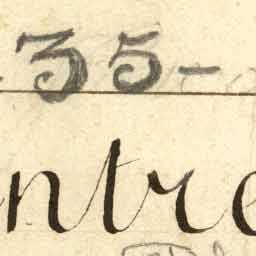 35-
ntre